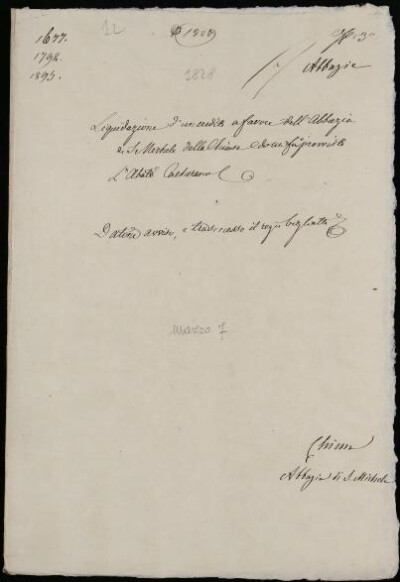 1677.
1792.
1895.
12
1828
Abbazie
Liquidazione d'un credito a favore dell'Abbazia
di S. Michele della Chiusa
L'Abate
Datone avviso, e trasmesso il regio biglietto
mazzo 7
Chiusa
Abbazia di S. Michele